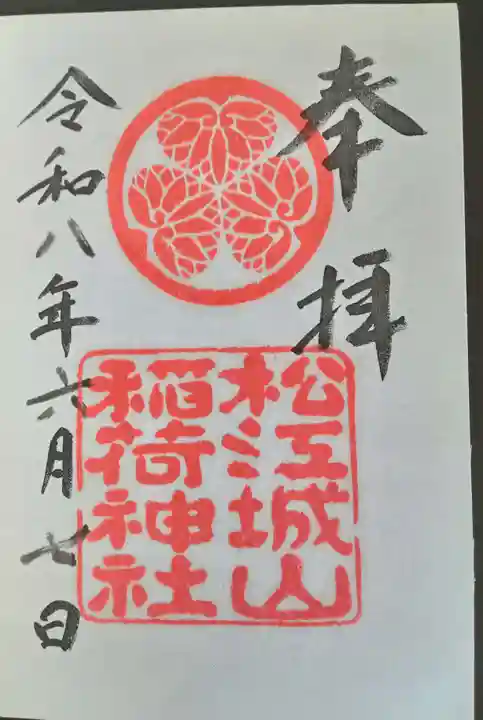 奉拝
松江城山
稲荷神社
令和八年六月七日